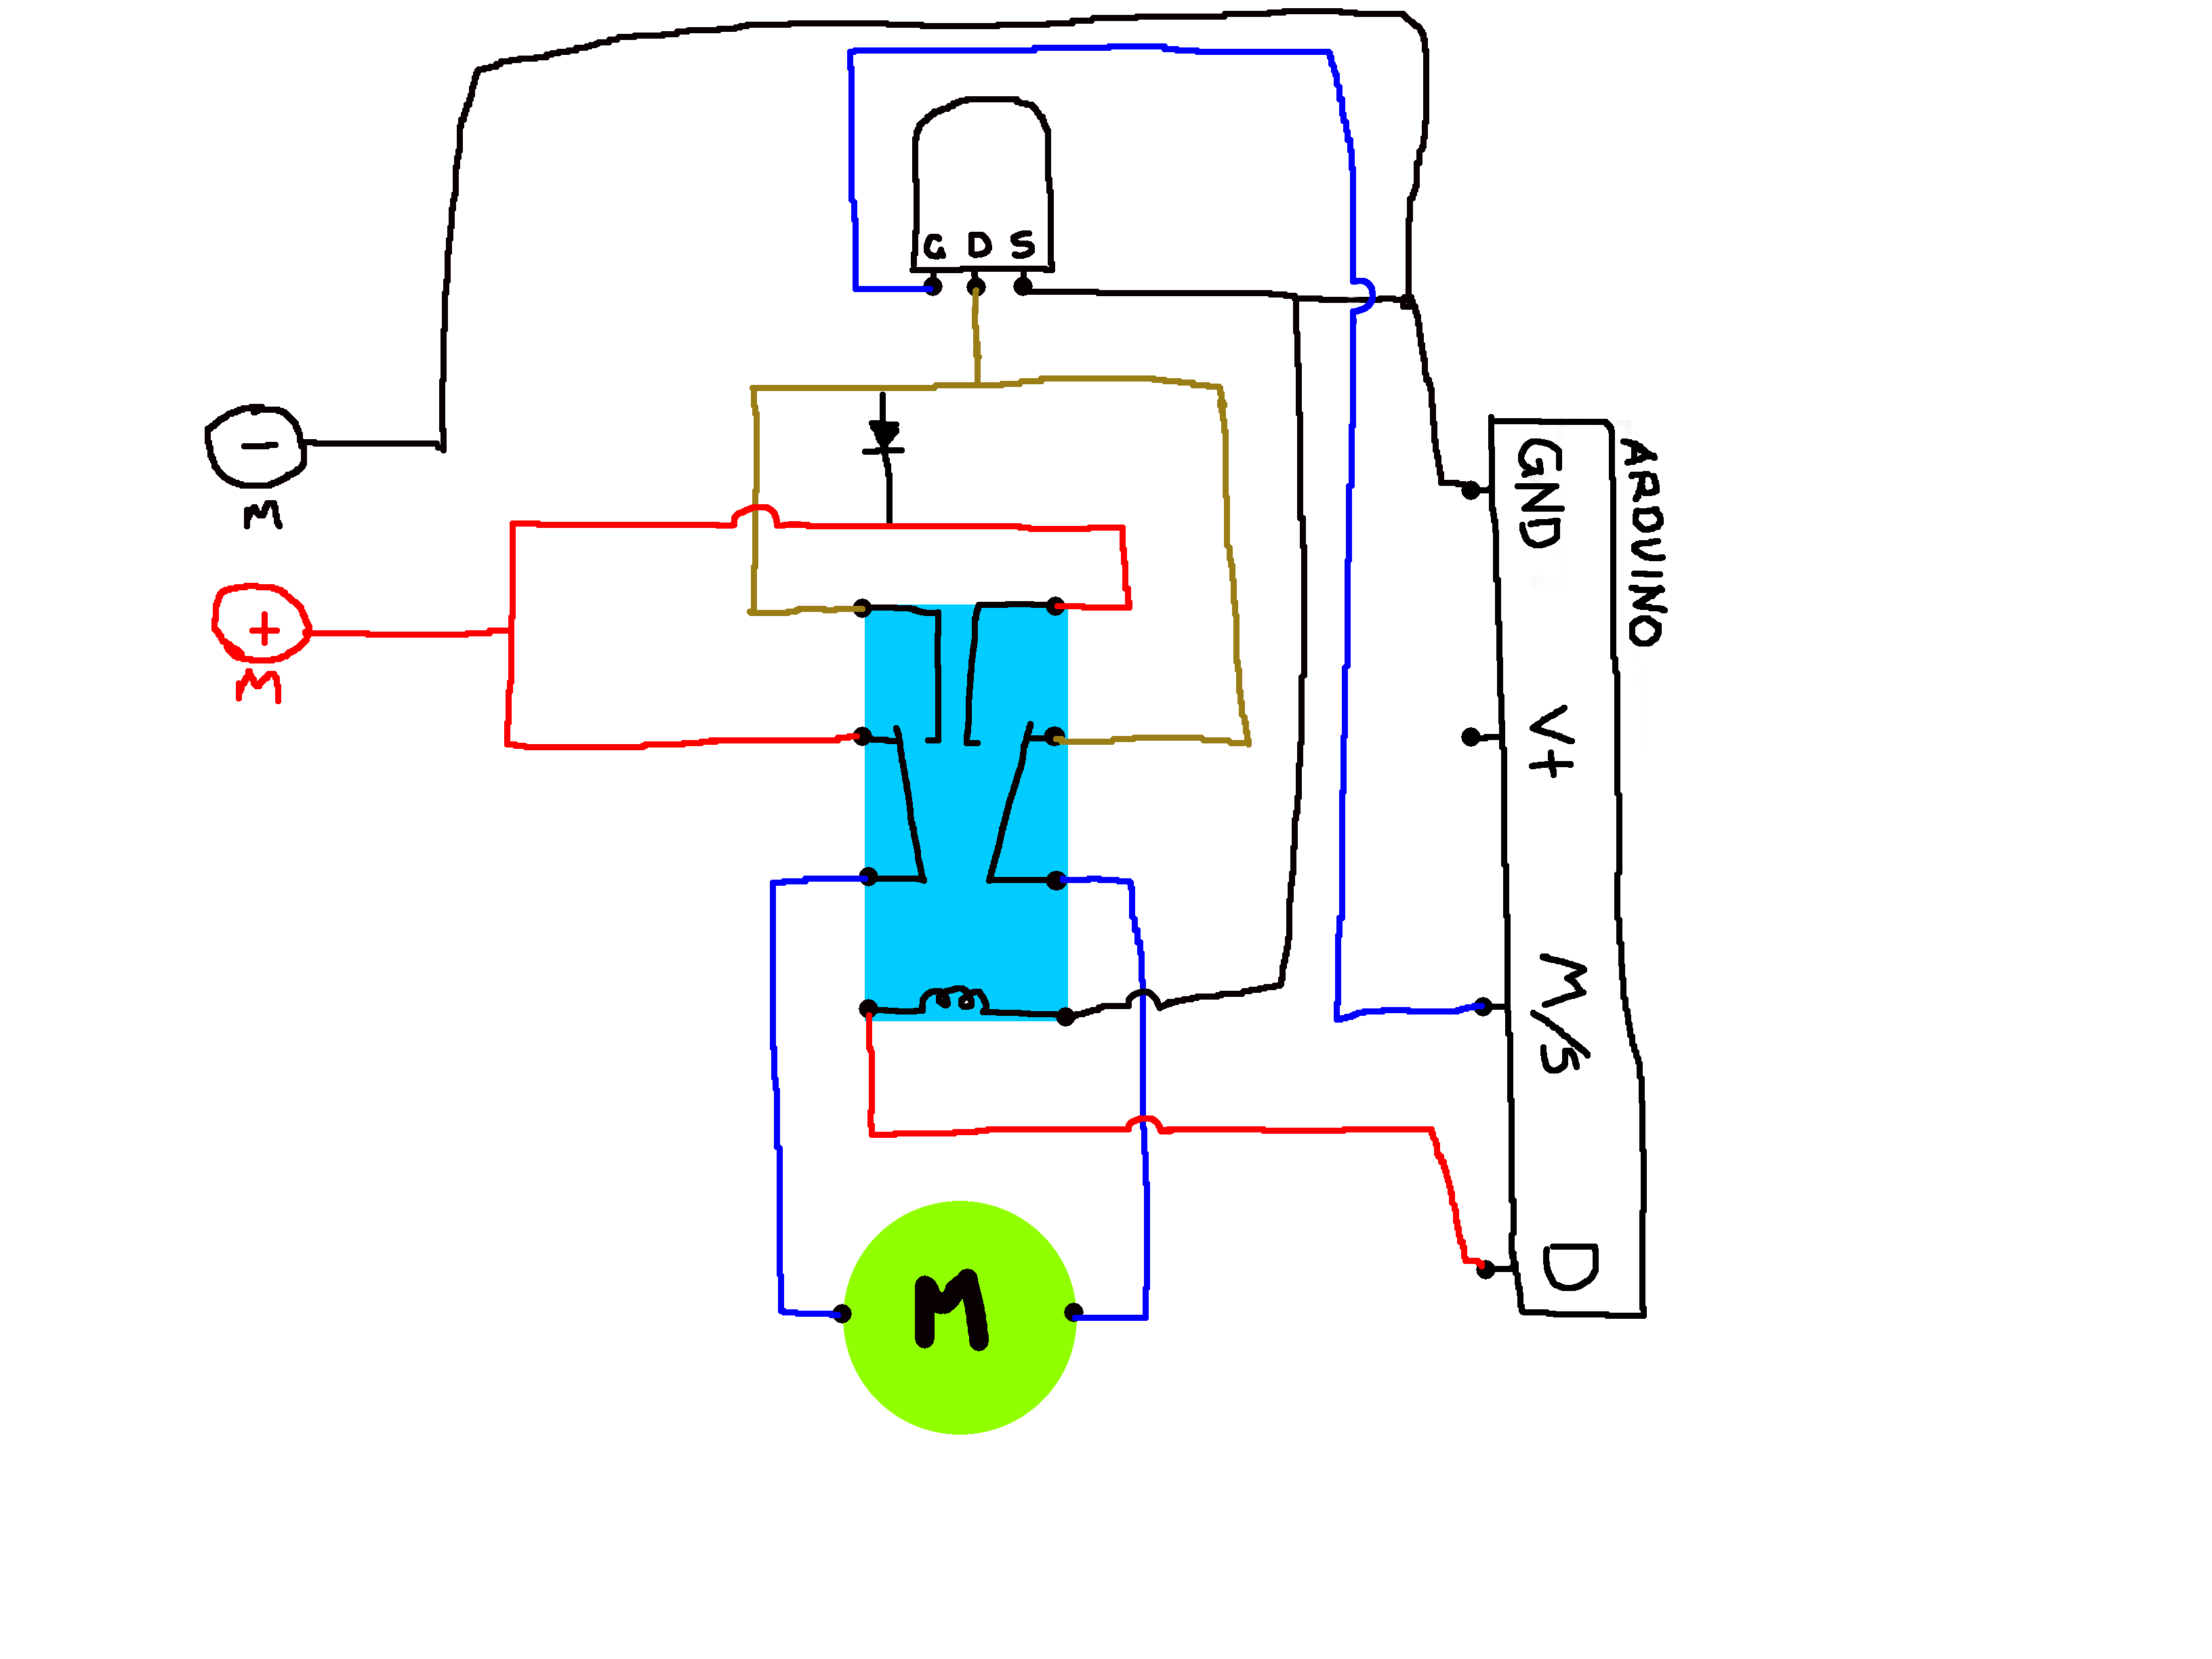 G D S
−
M
+
M
ARDUINO
GND
V+
M/S
D
M